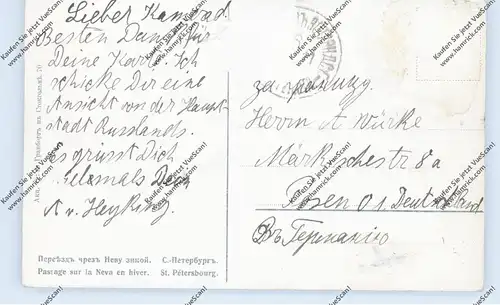 Lieber Kamerad.
Besten Dank für
Deine Karte. Ich
schicke Dir eine
Ansicht von der Haupt-
stadt Russlands.
Es grüsst Dich
vielmals Dein
A v. Heyking.
за границу.
Herrn A Würke
Märkischestr 8a
Posen O 1. Deutschland
Въ Германiю
Переѣздъ чрезъ Неву зимой. С.-Петербургъ.
Passage sur la Neva en hiver. St. Pétersbourg.
Kaufen Sie jetzt VueScan!
www.hamrick.com